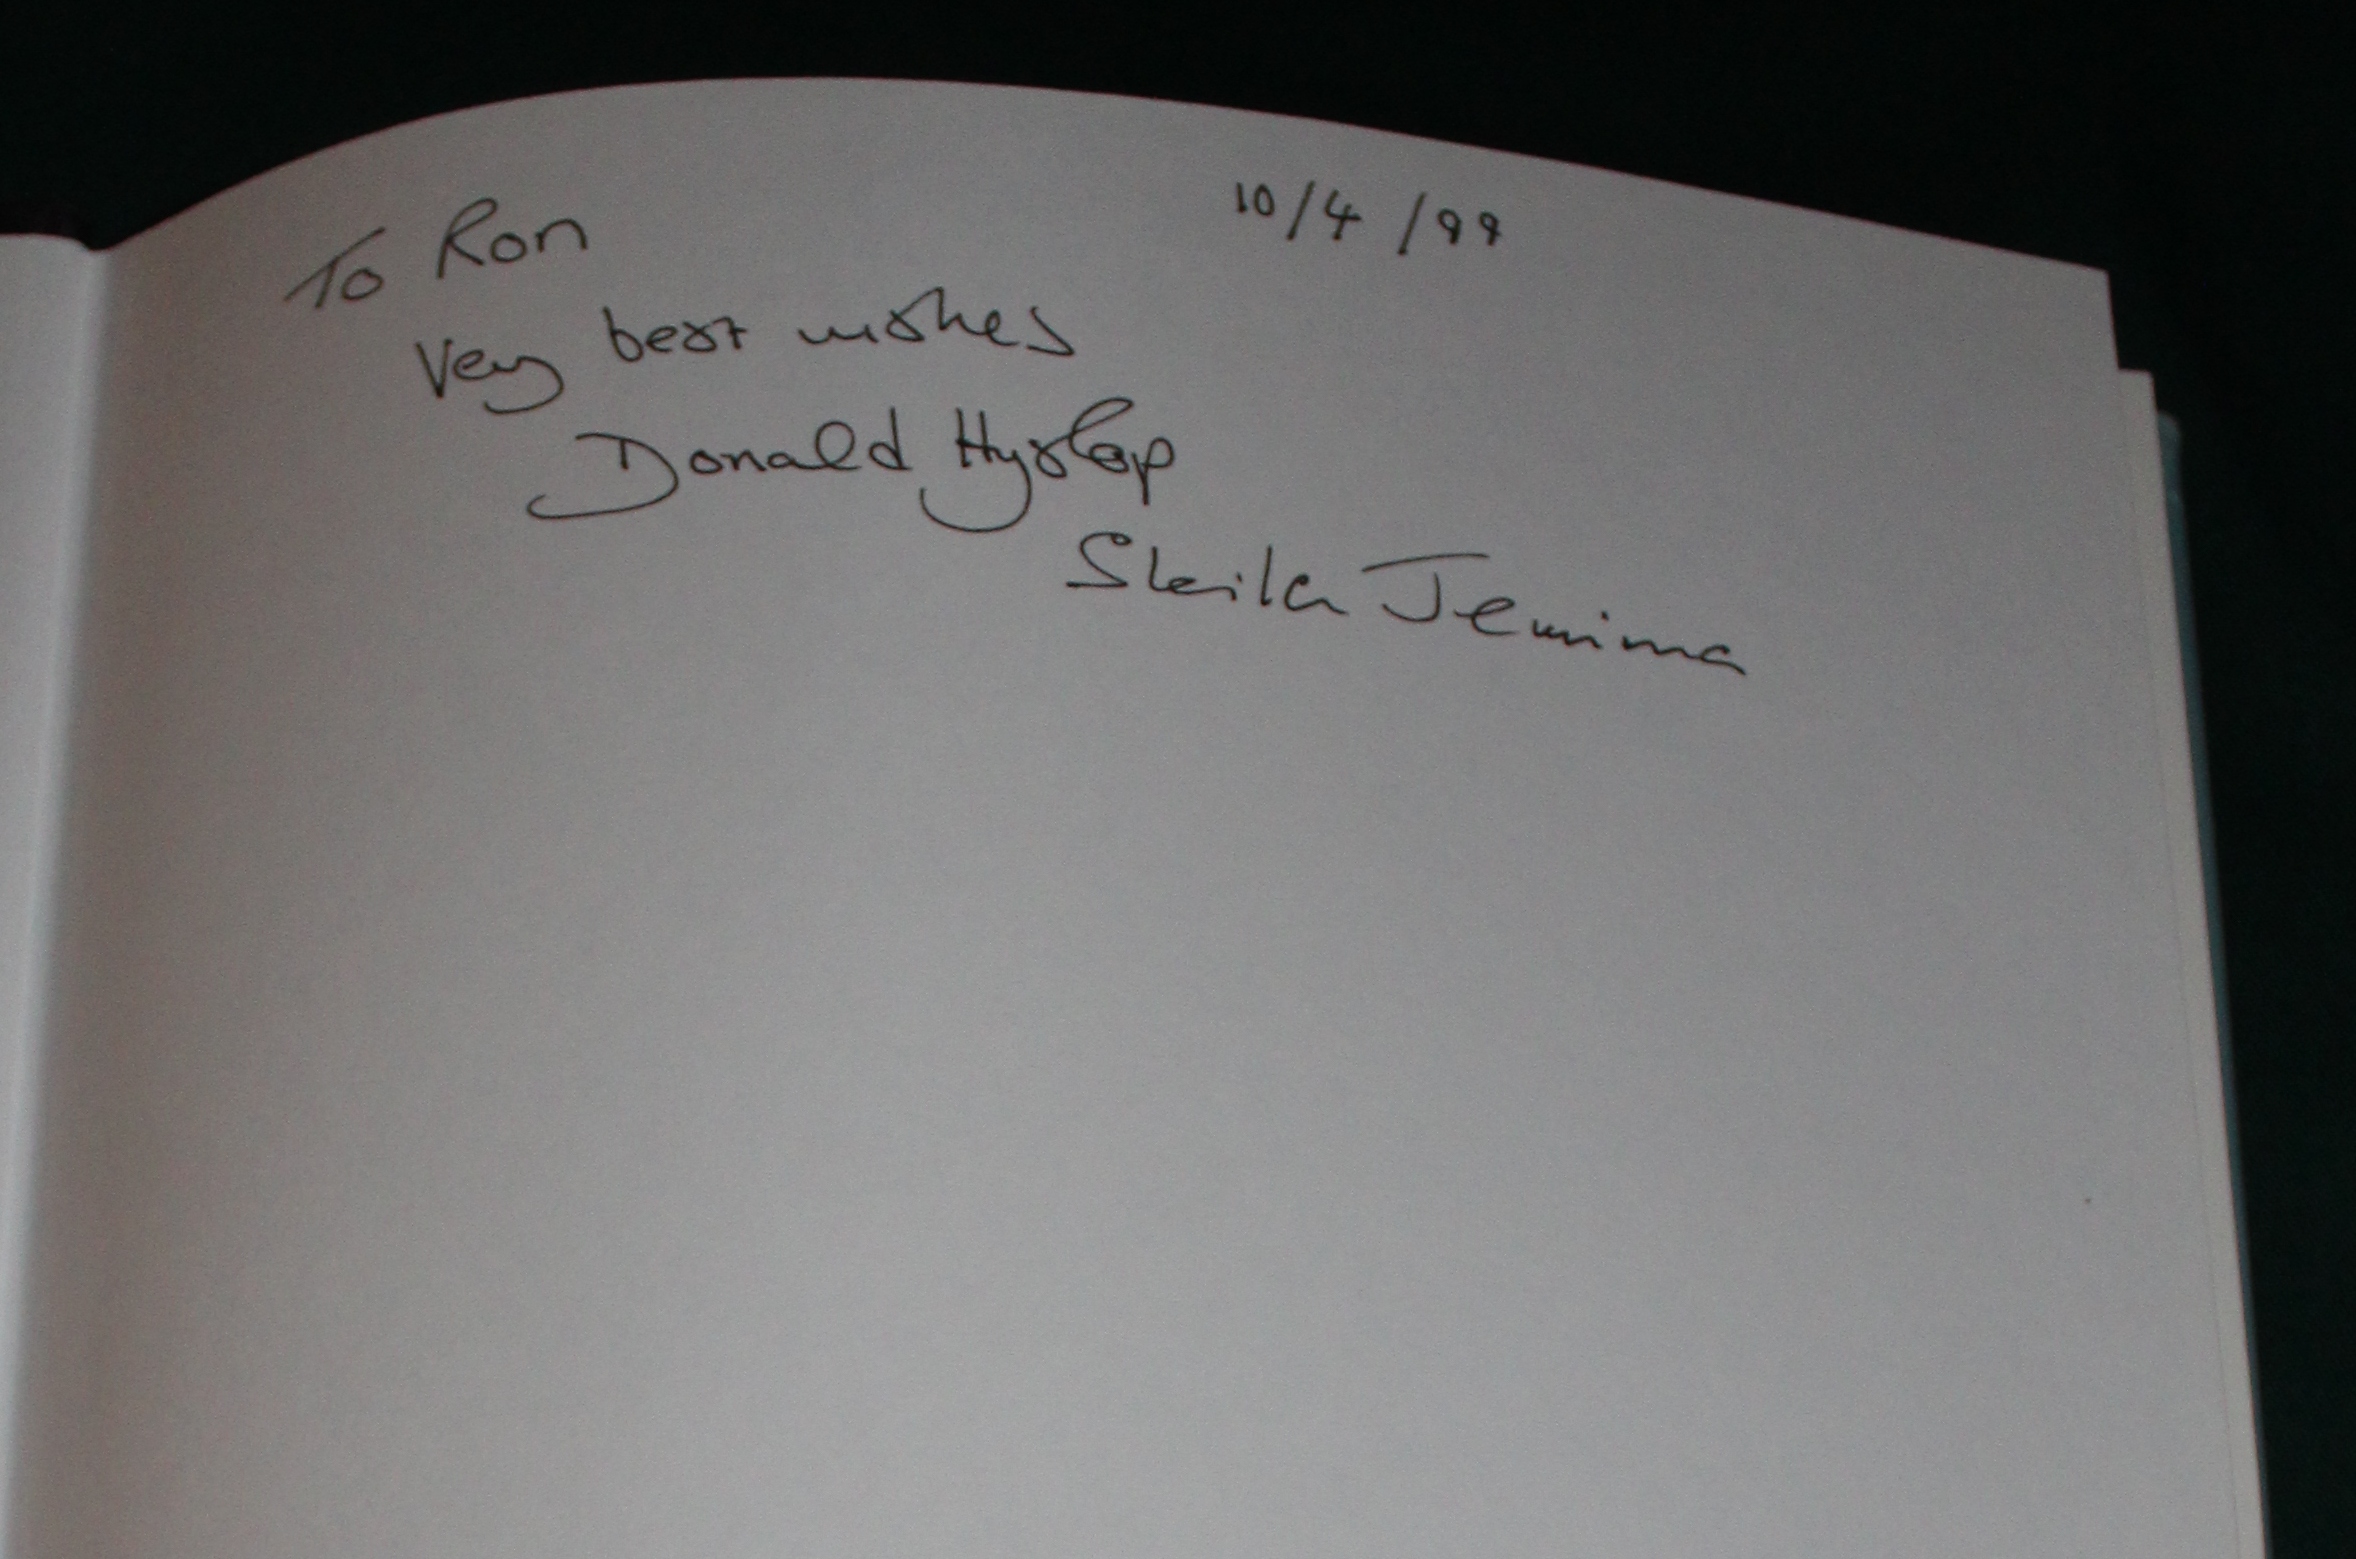 To Ron 10/4/99
Very best wishes
Donald Hyslop
Sheila Jemima